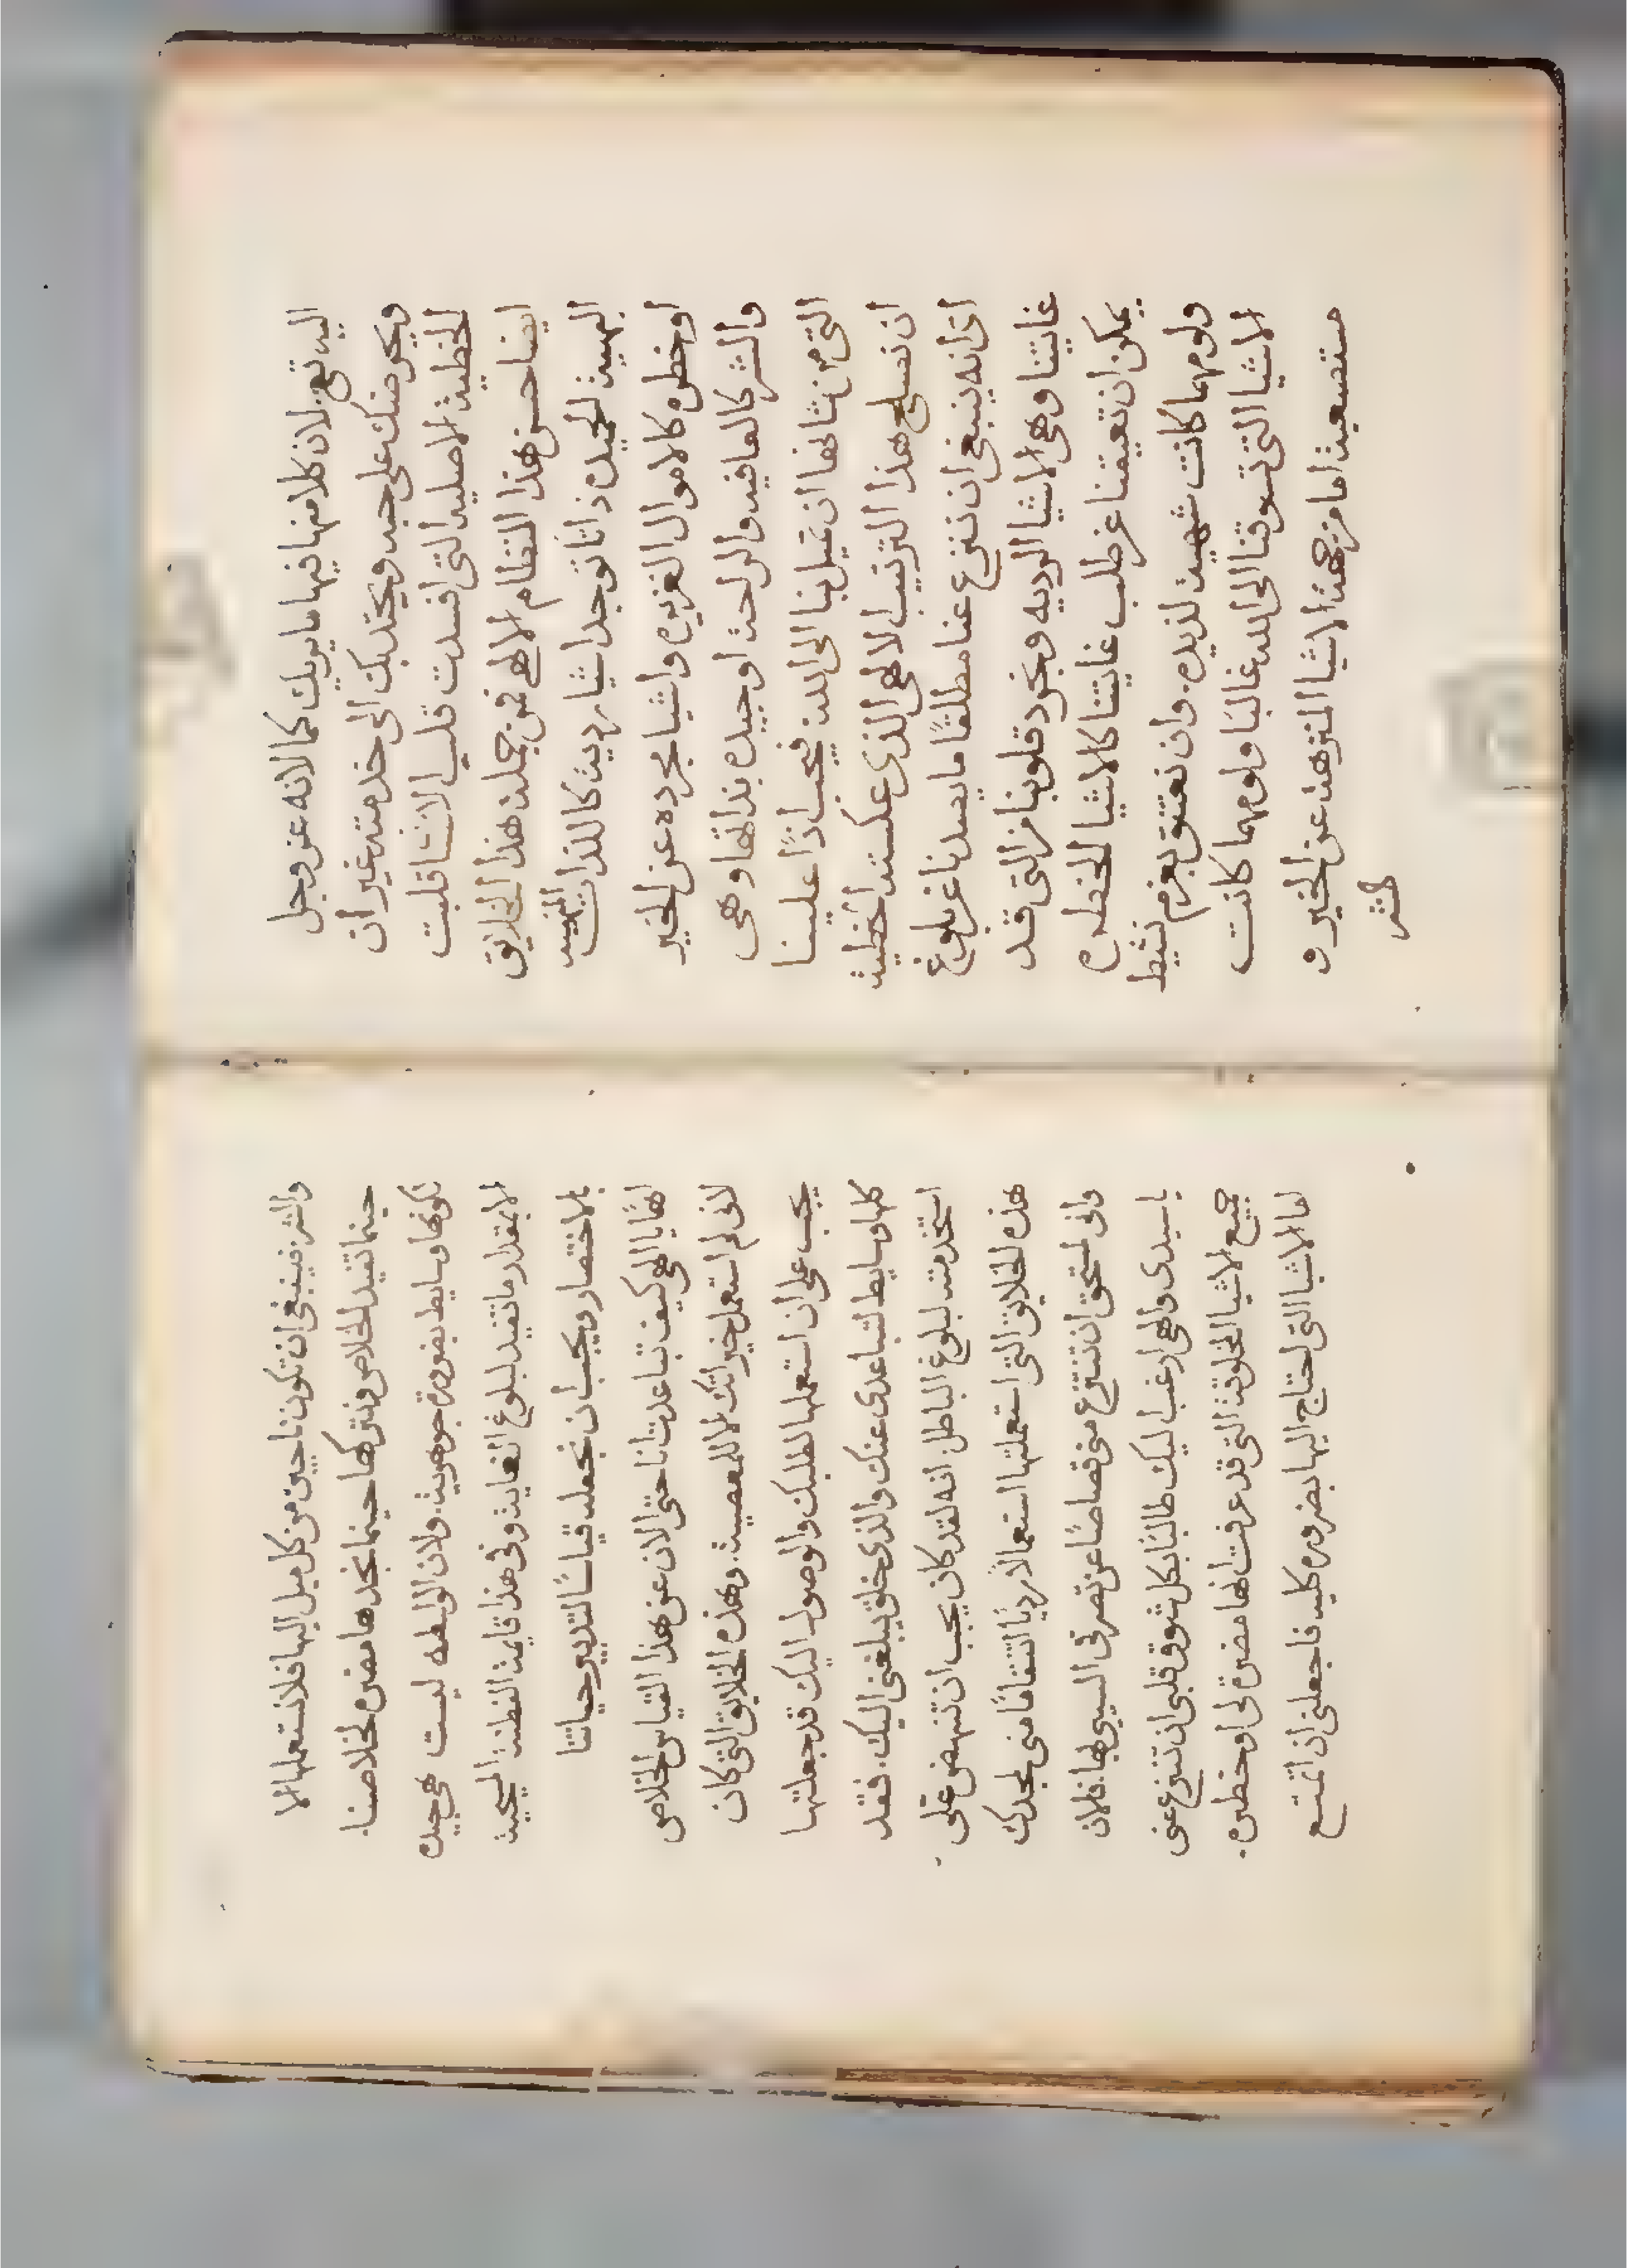 اليه تعالى لان كلا منها فيها ما يريك كمالاته عز وجل
ويحرضك على حبه ويجتذبك الى خدمته غير أن
الخطية الاصلية التي افسدت قلب الانسان قلبت
ايضا حسن هذا النظام الالهي فمن جملة هذا الخلايق
البهية الحميده ذاتا توجد اشيا ردية كاللذات
او خطره كالاموال الغزيره واشيا مجرده عن الخير
والشر كالعافية والراحة او جيده بذاتها وهي
التي من شانها ان تميل بنا الى الله فيجب اذًا علينا
ان نصلح هذا الترتيب الالهي الذي عكسته الخطية
اي انه ينبغي ان ننزع عنا مطلقًا ما يصدنا عن بلوغ
غايتنا وهي الاشيا الرديه ونجرد قلوبنا من التي قد
يمكن ان تعيقنا عن طلب غايتنا كالاشيا الخطره
ولو مهما كانت شهية لذيذه. وان نعتنق بعزم نشيط
الاشيا التي تسوقنا الى الله غالبًا ولو مهما كانت
مستصعبة اما من جهة الاشيا المنزهة عن الخير و
الشر
والشر فينبغي ان نكون ناجين من كل ميل اليها فلا نستعملها الا
حينما تفيد الخلاص ونتركها حينما نجدها مضره لخلاصنا.
لكونها وسايط بضرورة جوهرية. ولان الواسطه ليست هي جيده
الا بمقدار ما تفيد لبلوغ الغاية وفي هذا قايمة الفطنة المسيحية
بالاختصار ويجب أن نجعله قياسًا لتدبير حياتنا
لهًا يا الهي كيف تباعدت انا حتى الان عن هذا القياس الخلاص
لاني لم استعمل خيراتك الا للمعصية. وهذه الخلايق التي كان
يجب علي ان استعملها لطلبك والوصول اليك قد جعلتها
كلها وسايط لتباعدي عنك والذي خلق ليبلغني اليك. فقد
استخدمته لبلوغ الباطل. انه لقد كان يجب ان تنهض علي
هذه الخلايق التي استعملتها استعمالاً رديًا انتقامًا مني لمجدك
واني لمستحق ان تنتزع مني قصاصًا عن تصرفي السيي بها. فالان
يا سيدي والهي ارغب اليك طالبًا بكل شوق قلبي ان تنزع عني
جميع الاشيا المخلوقة التي قد عرفت انها مضرة لي او خطره.
اما الاشيا التي احتاج اليها بضروره كلية فاجعلني ان اتمتع